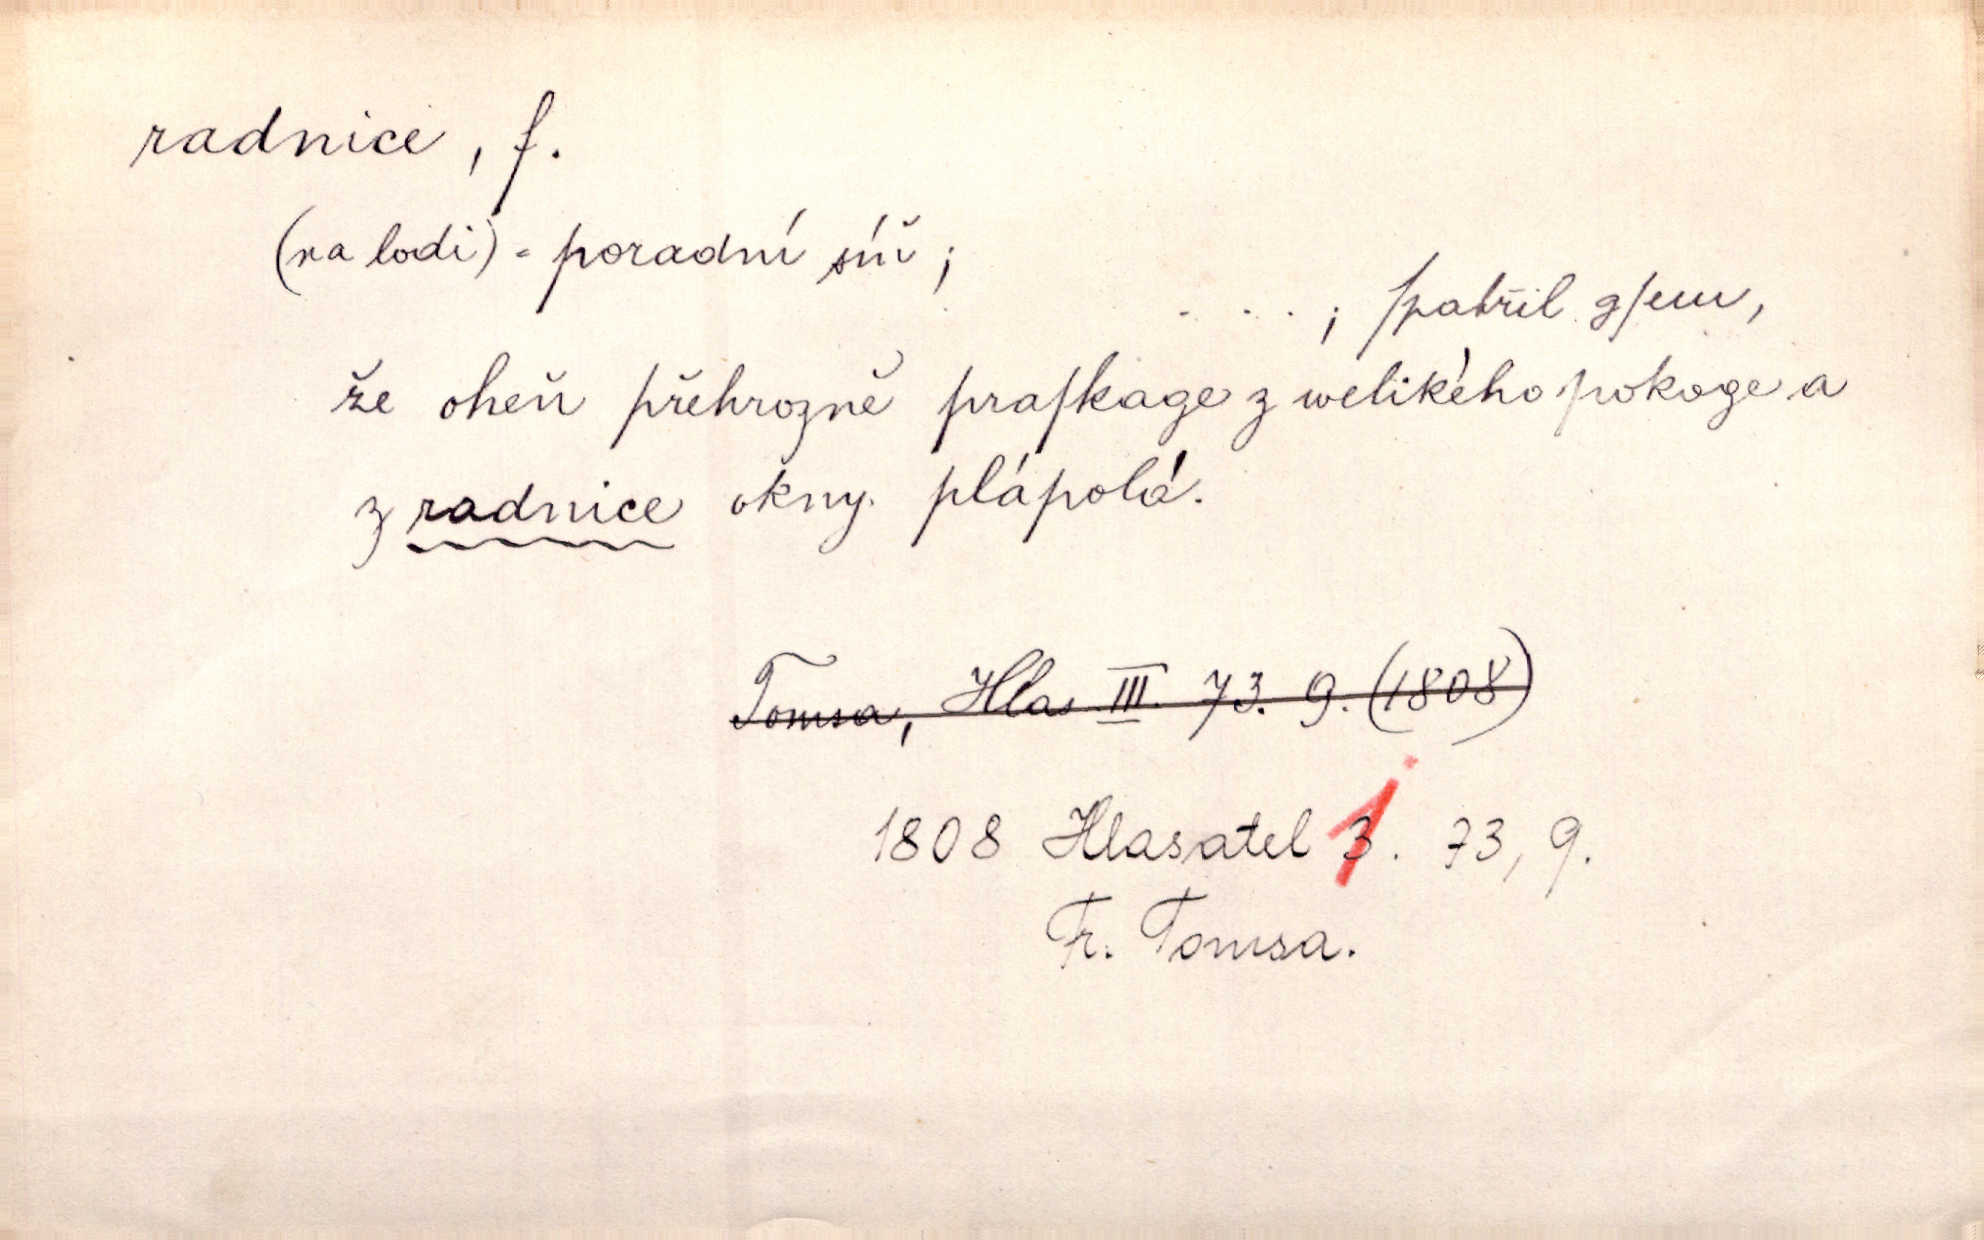 radnice, f.
(na lodi) = poradní síň;
. . . ; ſpatřil gſem,
že oheň přehrozně praſkage z welikého pokoge a
z radnice okny plápolá.
Tomsa, Hlas III. 73. 9. (1808)
1808 Hlasatel 3. 73, 9.
Fr. Tomsa.